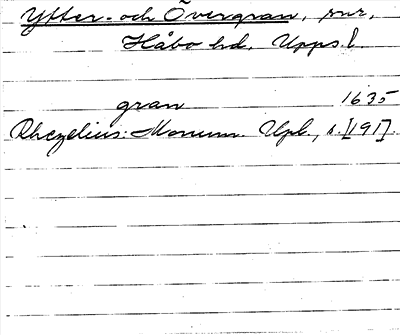 Ytter- och Övergran, snr,
Håbo hd, Upps. l.
gran 1635
Rhezelius: Monum. Upl., s. [191].